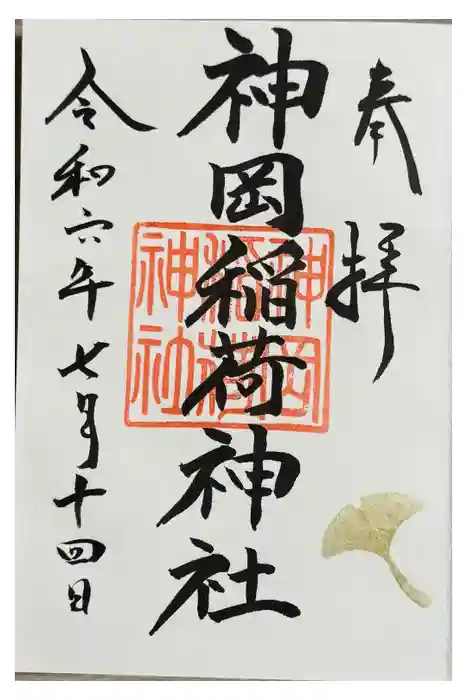 奉拝
神岡稲荷神社
神岡
稲荷
神社
令和六年七月十四日